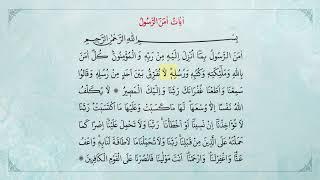 آيَاتُ اٰمَنَ الرَّسُولُ
بِسْمِ اللّٰهِ الرَّحْمٰنِ الرَّحِيمِ
اٰمَنَ الرَّسُولُ بِمَٓا اُنْزِلَ اِلَيْهِ مِنْ رَبِّهِ وَالْمُؤْمِنُونَۜ كُلٌّ اٰمَنَ
بِاللّٰهِ وَمَلٰٓئِكَتِهِ وَكُتُبِهِ وَرُسُلِهِۜ لَا نُفَرِّقُ بَيْنَ اَحَدٍ مِنْ رُسُلِهِ وَقَالُوا
سَمِعْنَا وَاَطَعْنَا غُفْرَانَكَ رَبَّنَا وَاِلَيْكَ الْمَصِيرُ ❊ لَا يُكَلِّفُ
اللّٰهُ نَفْسًا اِلَّا وُسْعَهَاۜ لَهَا مَا كَسَبَتْ وَعَلَيْهَا مَا اكْتَسَبَتْۜ رَبَّنَا
لَا تُؤَاخِذْنَٓا اِنْ نَسِينَٓا اَوْ اَخْطَأْنَاۚ رَبَّنَا وَلَا تَحْمِلْ عَلَيْنَٓا اِصْرًا كَمَا
حَمَلْتَهُ عَلَى الَّذِينَ مِنْ قَبْلِنَاۚ رَبَّنَا وَلَا تُحَمِّلْنَا مَا لَا طَاقَةَ لَنَا بِهِۚ وَاعْفُ
عَنَّا۠ وَاغْفِرْ لَنَا۠ وَارْحَمْنَا۠ اَنْتَ مَوْلٰينَا فَانْصُرْنَا عَلَى الْقَوْمِ الْكَافِرِينَ ❊